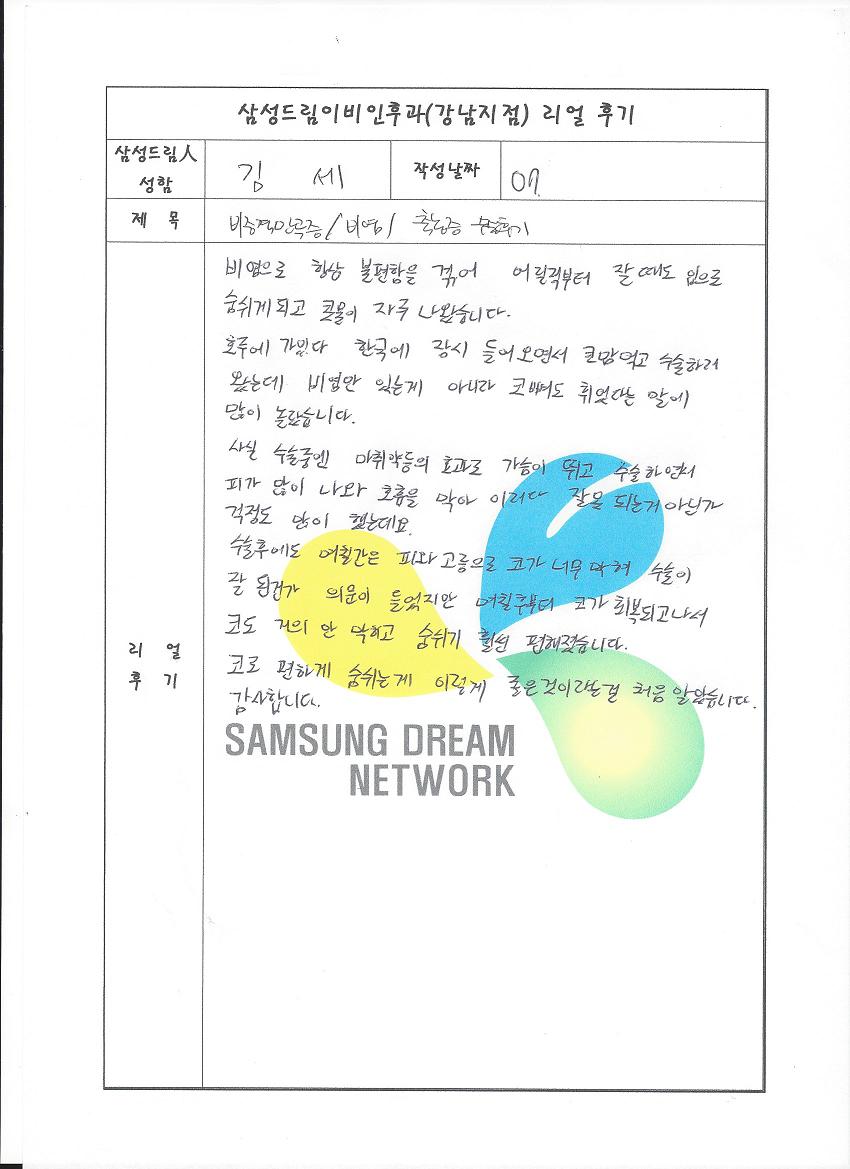 삼성드림이비인후과(강남지점) 리얼 후기
삼성드림人
성함
김 세
작성날짜
07.
제 목
비중격만곡증/비염/ 축농증 수술후기
비염으로 항상 불편함을 겪어 어릴적부터 잘 때도 입으로
숨쉬게 되고 콧물이 자주 나왔습니다.
호주에 가있다 한국에 잠시 들어오면서 큰맘먹고 수술하러
왔는데 비염만 있는게 아니라 코뼈도 휘었다는 말에
많이 놀랐습니다.
사실 수술중엔 마취약등의 효과로 가슴이 뛰고 수술하면서
피가 많이 나와 호흡을 막아 이러다 잘못 되는거 아닌가
걱정도 많이 했는데요.
수술후에도 며칠간은 피와 고름으로 코가 너무 막혀 수술이
잘 된건가 의문이 들었지만 며칠후부터 코가 회복되고나서
코도 거의 안 막히고 숨쉬기 훨씬 편해졌습니다.
코로 편하게 숨쉬는게 이렇게 좋은것이라는걸 처음 알았습니다.
감사합니다.
리 얼
후 기
SAMSUNG DREAM
NETWORK